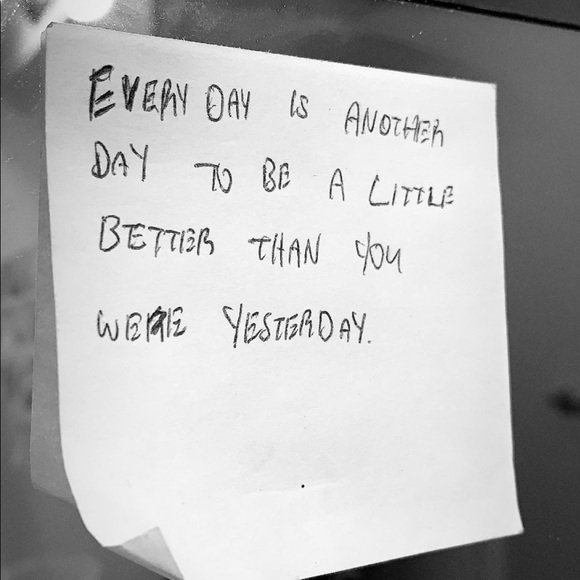 EVERY DAY IS ANOTHER
DAY TO BE A LITTLE
BETTER THAN YOU
WERE YESTERDAY.